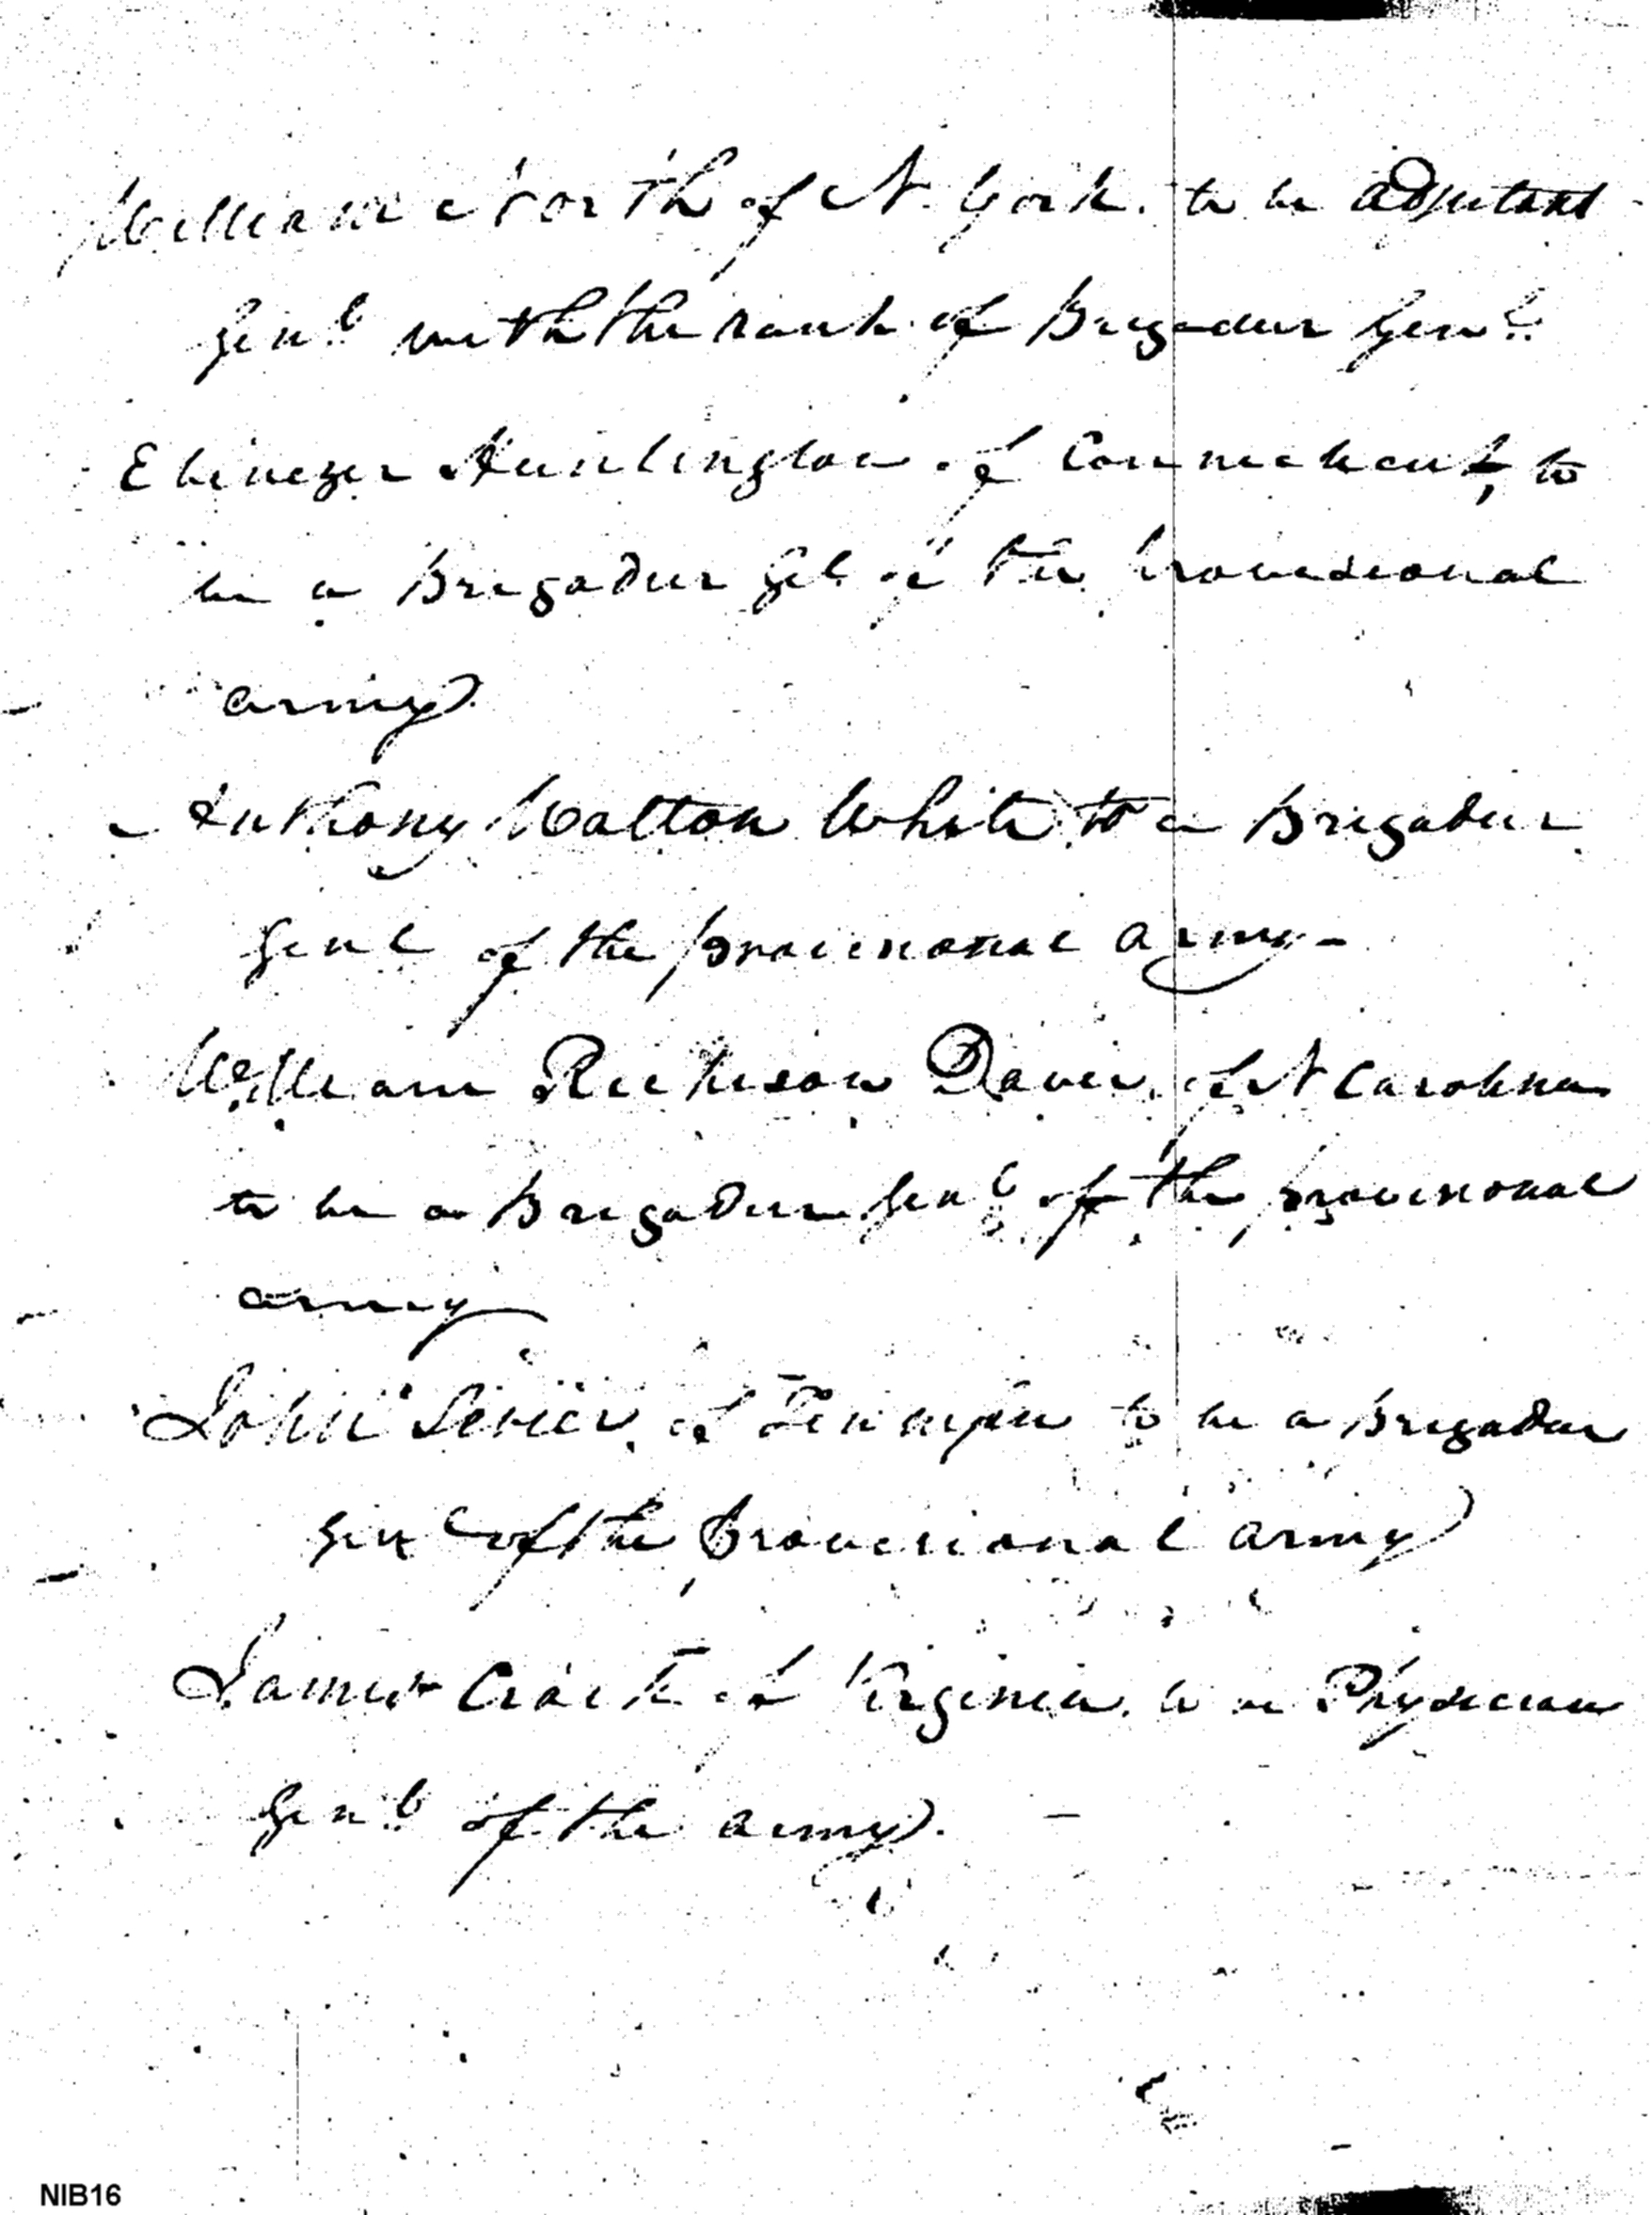 William North of N. York. to be adjutant
Genl with the rank of Brigadier Genl
Ebinezer Huntington of Connecticut, to
be a Brigadier Gel of the Provisional
army.
Anthony Walton White to a Brigadier
Genl of the provisional army-
William Richison Davie, of N Carolina
to be a Brigadier Genl of the provisional
army
John Sevier, of Tennessee to be a Brigadier
Genl of the Provisional army
James Craik of Virginia, to be Physician
Genl of the army. -
NIB16